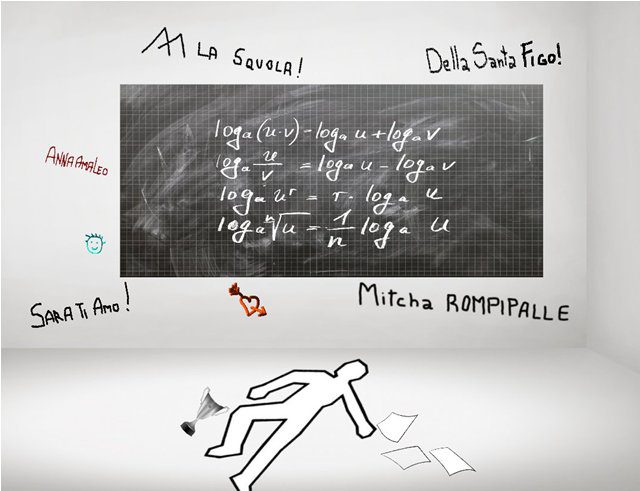 LA SQUOLA!
Della Santa FIGO!
log a (u·v) - log a u + log a v
log a u/v = log a u - log a v
log a uʳ = r · log a u
log a ⁿ√u = 1/n log a u
ANNA AMA LEO
SARA TI AMO!
Mitcha ROMPIPALLE